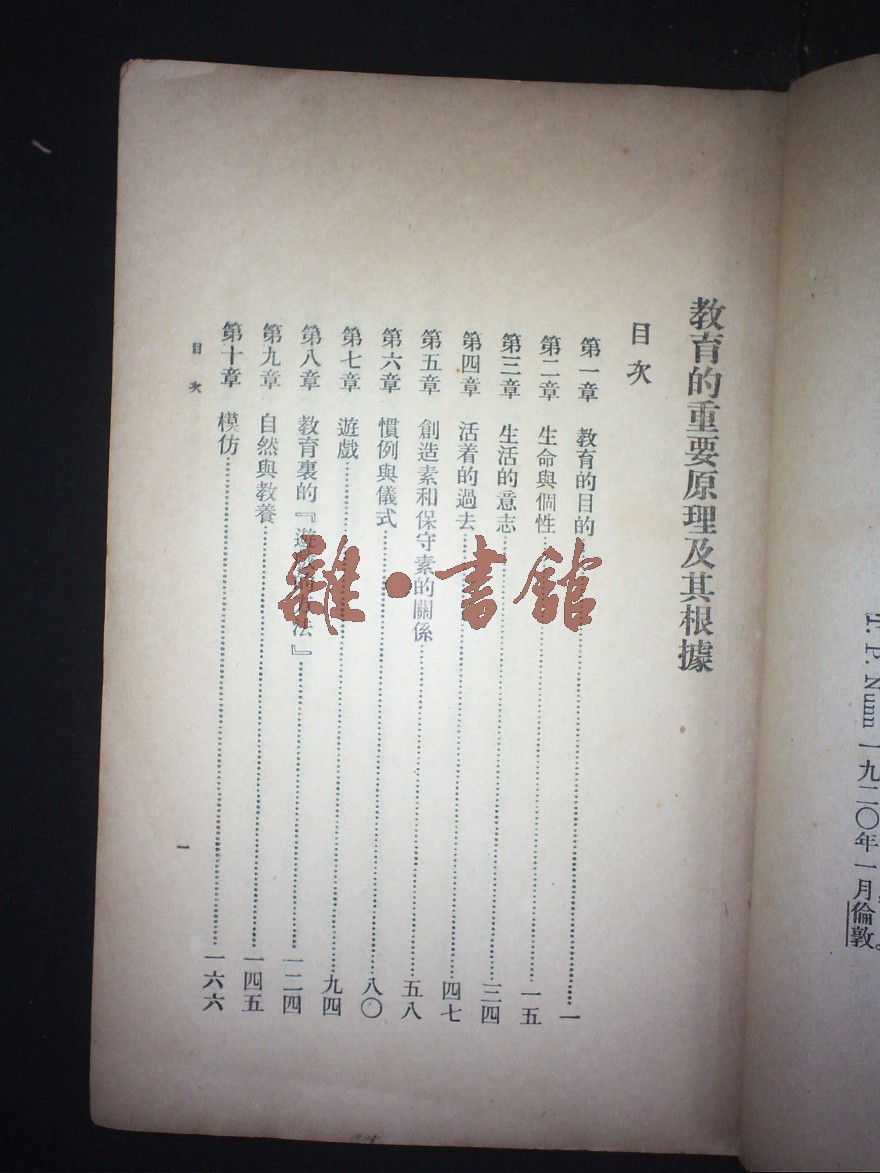 T. P. Nunn 一九二〇年一月，倫敦。
教育的重要原理及其根據
目次
第一章 教育的目的 一
第二章 生命與個性 一五
第三章 生活的意志 三四
第四章 活着的過去 四七
第五章 創造素和保守素的關係 五八
第六章 慣例與儀式 八〇
第七章 遊戲 九四
第八章 教育裏的『遊戲方法』 一二四
第九章 自然與教養 一四五
第十章 模仿 一六六
目次
一
雜·書館